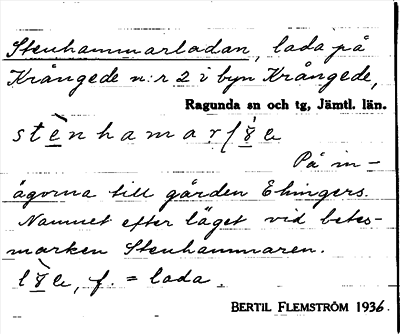 Stenhammarladan, lada på
Krångede n:r 2 i byn Krångede,
Ragunda sn och tg, Jämtl. län.
På in-
ägorna till gården Ehingers.
Namnet efter läget vid betes-
marken Stenhammaren.
f. = lada.
BERTIL FLEMSTRÖM 1936.